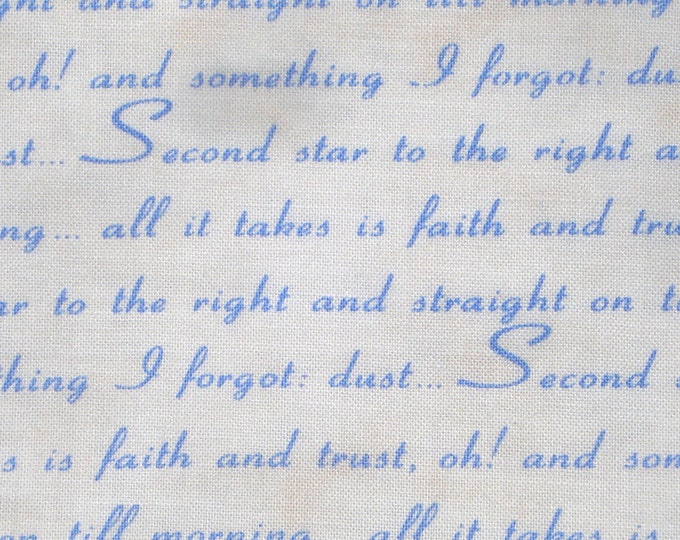 ght and straight on till morning
oh! and something I forgot: dus
st... Second star to the right a
ng... all it takes is faith and tru
ar to the right and straight on t
thing I forgot: dust... Second
s is faith and trust, oh! and som
on till morning... all it takes is